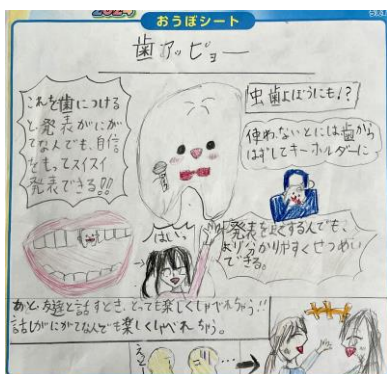 2024
おうぼシート
歯アッピョー
これを歯につける
と発表がにが
てなんでも、自信
をもってスイスイ
発表できる!!
虫歯よぼうにも!?
使わないときには歯から
はずしてキーホルダーに
はい。
発表を上するんでも、
より分かりやすくせつめい
できる。
あと、友達と話すとき、とっても楽しくしゃべれちゃう!!
話しがにがてなんでも楽しくしゃべれちゃう。